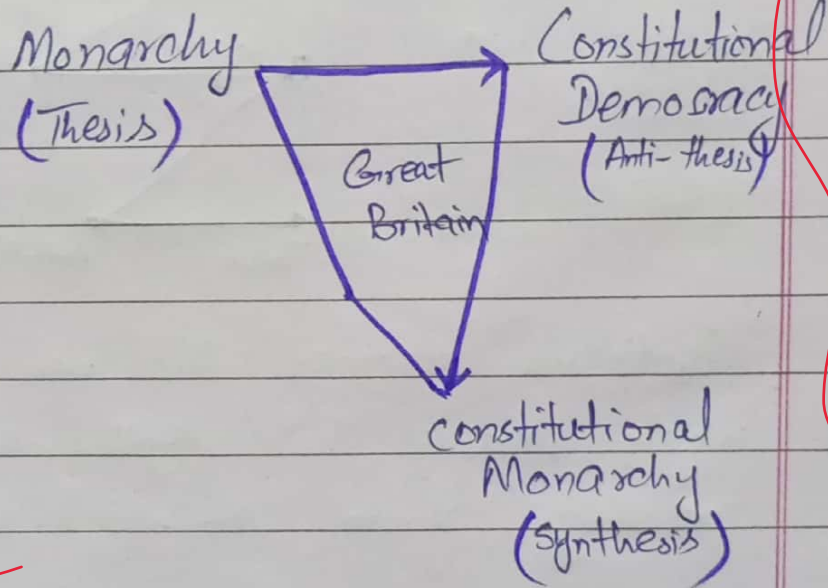 Monarchy
(Thesis)
Constitutional
Democracy
(Anti-thesis)
Great
Britain
constitutional
Monarchy
(synthesis)